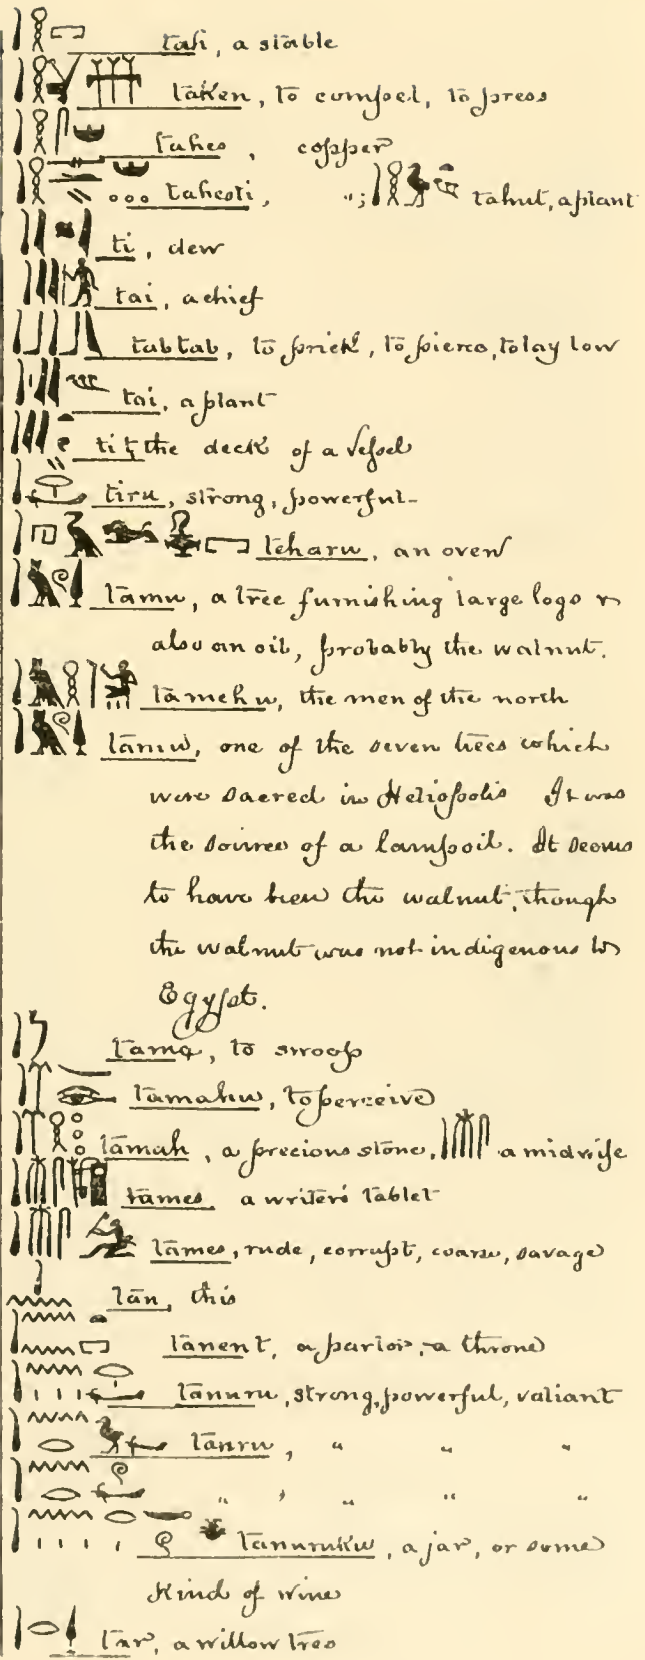 tah, a stable
taken, to compel, to press
tahes, copper
tahesti, "; tahut, a plant
ti, dew
tai, a chief
tabtab, to prick, to pierce, to lay low
tai, a plant
tit, the deck of a vessel
tiru, strong, powerful
teharu, an oven
tamu, a tree furnishing large logs &
also an oil, probably the walnut.
tamehu, the men of the north
tamu, one of the seven trees which
were sacred in Heliopolis It was
the source of a lamp oil. It seems
to have been the walnut, though
the walnut was not indigenous to
Egypt.
tama, to swoop
tamahu, to perceive
tamah, a precious stone, a midwife
tames, a writer's tablet
tames, rude, corrupt, coarse, savage
tan, this
tanent, a parlor, a throne
tanuru, strong, powerful, valiant
tanru, " " "
" , " " "
tanuruku, a jar, or some
kind of wine
tar, a willow tree